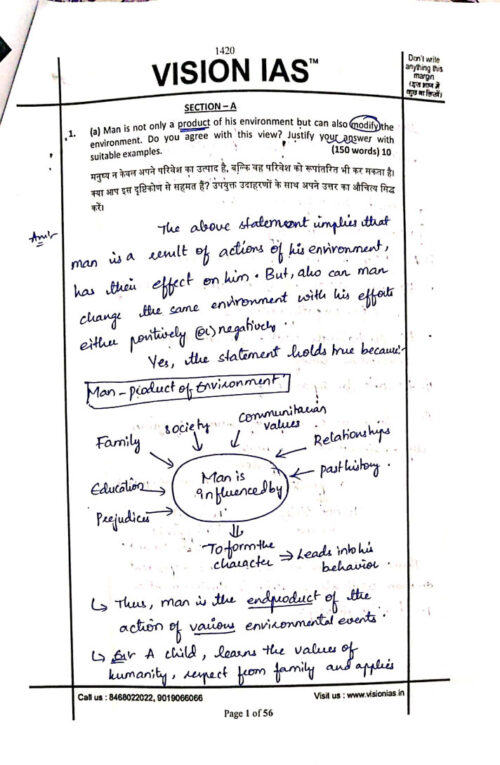 1420
VISION IAS™
Don't write
anything this
margin
(इस भाग में
कुछ ना लिखें)
SECTION – A
1. (a) Man is not only a product of his environment but can also modify the
environment. Do you agree with this view? Justify your answer with
suitable examples. (150 words) 10
मनुष्य न केवल अपने परिवेश का उत्पाद है, बल्कि वह परिवेश को रूपांतरित भी कर सकता है।
क्या आप इस दृष्टिकोण से सहमत हैं? उपयुक्त उदाहरणों के साथ अपने उत्तर का औचित्य सिद्ध
करें।
Ans:-
The above statement implies that
man is a result of actions of his environment,
has their effect on him. But, also can man
change the same environment with his efforts
either positively (or) negatively.
Yes, the statement holds true because:-
Man – product of Environment
Family
society
communitarian
values
Relationships
past history.
Education
Prejudices
Man is
influenced by
To form the
character → Leads into his
behavior
↳ Thus, man is the endproduct of the
action of various environmental events.
↳ A child, learns the values of
humanity, respect from family and applies
Call us : 8468022022, 9019066066
Visit us : www.visionias.in
Page 1 of 56